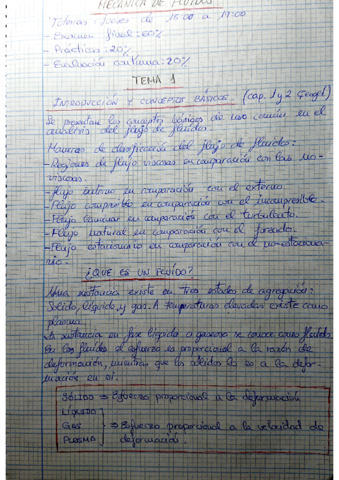 MECÁNICA DE FLUIDOS
Tutorías: Jueves de 15:00 a 19:00
- Examen final: 60%
- Prácticas: 20%
- Evaluación continua: 20%
TEMA 1
INTRODUCCIÓN Y CONCEPTOS BÁSICOS (cap. 1 y 2 Çengel)
Se presentan los conceptos básicos de uso común en el
análisis del flujo de fluidos.
Maneras de clasificación del flujo de fluidos:
- Regiones de flujo viscosas en comparación con las no-
viscosas.
- Flujo interno en comparación con el externo.
- Flujo compresible en comparación con el incompresible.
- Flujo laminar en comparación con el turbulento.
- Flujo natural en comparación con el forzado.
- Flujo estacionario en comparación con el no-estaciona-
rio
¿QUÉ ES UN FLUIDO?
Una sustancia existe en tres estados de agregación:
Sólido, líquido, y gas. A temperaturas elevadas existe como
plasma.
La sustancia en fase líquida o gaseosa se conoce como fluido.
En los fluidos el esfuerzo es proporcional a la razón de
deformación, mientras que los sólidos lo es a la defor-
mación en sí.
SÓLIDO ⇒ Esfuerzo proporcional a la deformación
LÍQUIDO
GAS ⇒ Esfuerzo proporcional a la velocidad de
PLASMA deformación.